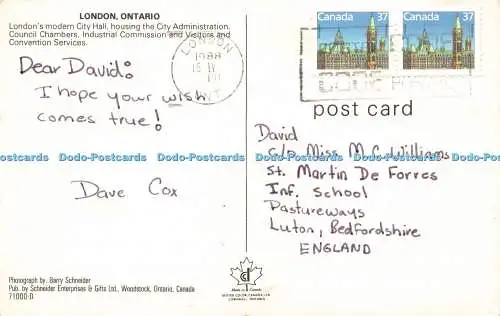 LONDON, ONTARIO
London's modern City Hall, housing the City Administration,
Council Chambers, Industrial Commission and Visitors and
Convention Services.
Dear David:
I hope your wish
comes true!
Dave Cox
Photograph by: Barry Schneider
Pub. by Schneider Enterprises & Gifts Ltd., Woodstock, Ontario, Canada
71000-D
LONDON
1988
Canada 37
Canada 37
post card
David
c/o Miss M. C. Williams
St. Martin De Porres
Inf. School
Pastureways
Luton, Bedfordshire
ENGLAND
Dodo-Postcards Dodo-Postcards Dodo-Postcards Dodo-Postcards Dodo-Postcards
Made in Canada